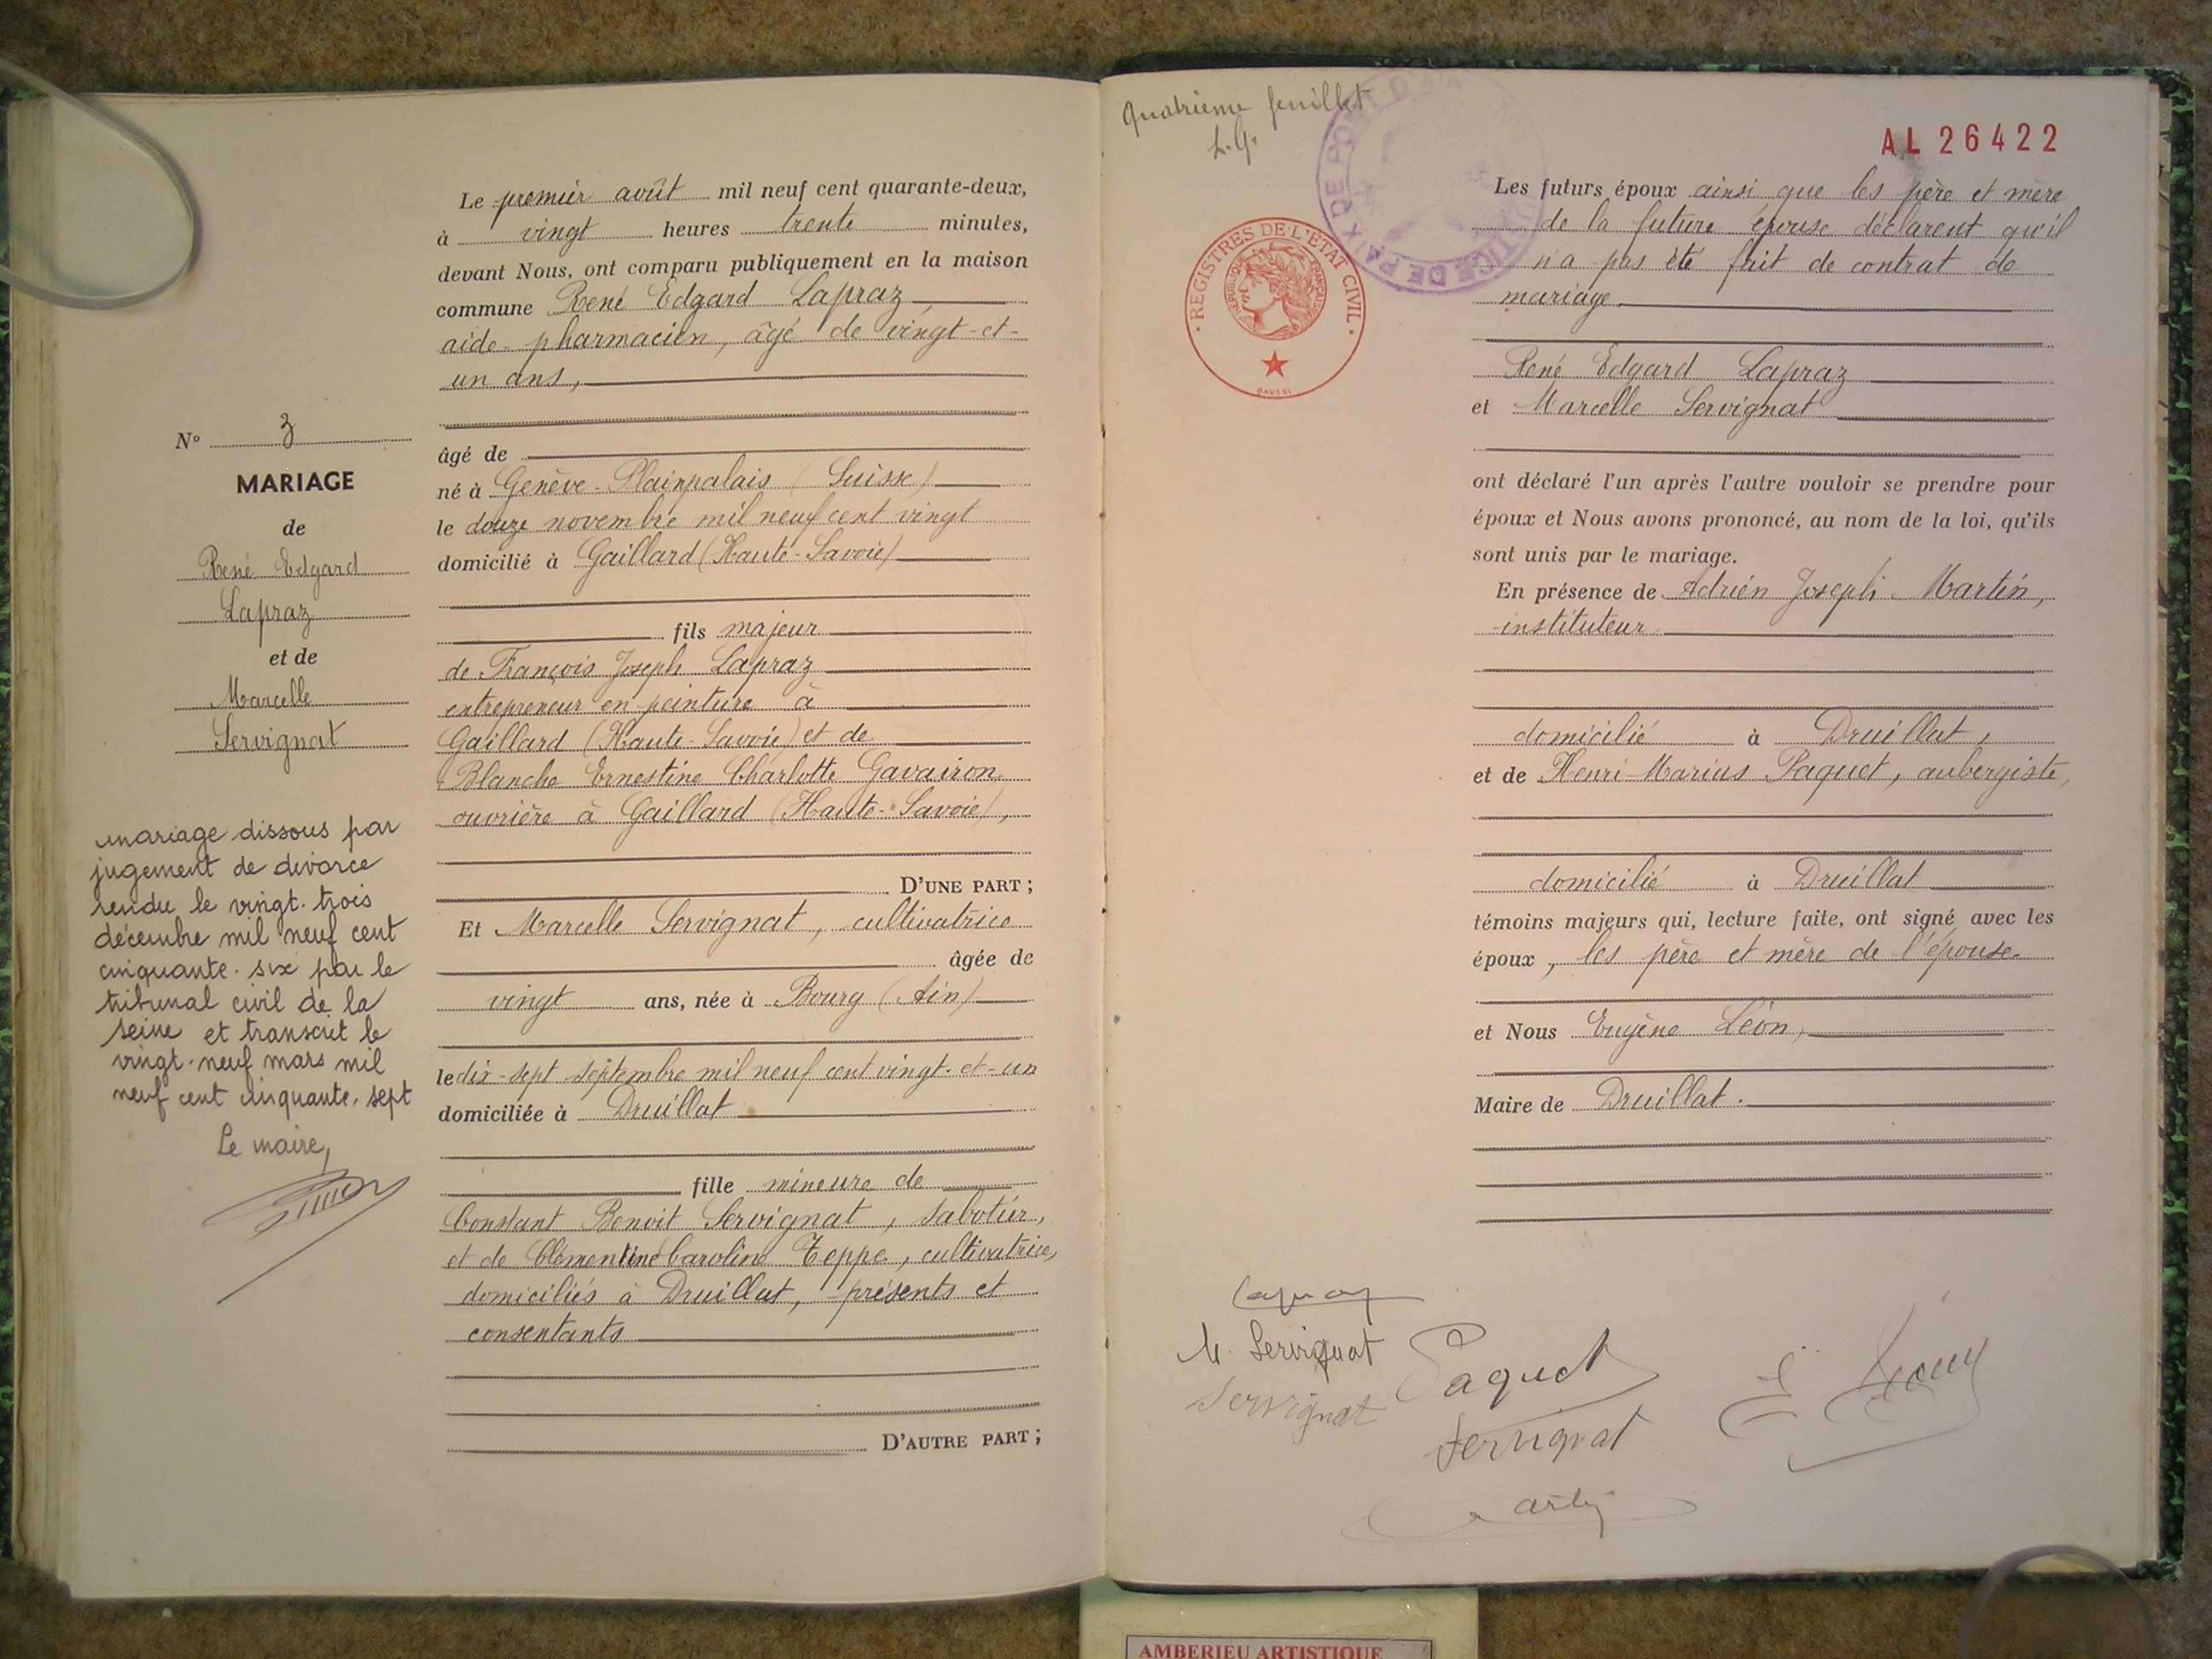 Le premier août mil neuf cent quarante-deux,
à vingt heures trente minutes,
devant Nous, ont comparu publiquement en la maison
commune René Edgard Lapraz,
aide-pharmacien, âgé de vingt-et-
un ans,
âgé de
né à Genève-Plainpalais (Suisse)
le douze novembre mil neuf cent vingt
domicilié à Gaillard (Haute-Savoie)
fils majeur
de François Joseph Lapraz
entrepreneur en peinture à
Gaillard (Haute-Savoie) et de
Blanche Ernestine Charlotte Gavairon,
ouvrière à Gaillard (Haute-Savoie),
D'UNE PART ;
Et Marcelle Servignat, cultivatrice
âgée de
vingt ans, née à Bourg (Ain)
le dix-sept septembre mil neuf cent vingt-et-un
domiciliée à Druillat
fille mineure de
Constant Benoit Servignat, sabotier,
et de Clémentine Caroline Teppe, cultivatrice,
domiciliés à Druillat, présents et
consentants
D'AUTRE PART ;
N° 3
MARIAGE
de
René Edgard
Lapraz
et de
Marcelle
Servignat
mariage dissous par
jugement de divorce
rendu le vingt-trois
décembre mil neuf cent
cinquante-six par le
tribunal civil de la
Seine et transcrit le
vingt-neuf mars mil
neuf cent cinquante-sept
Le maire,
Quatrième feuillet
L.G.
AL 26422
REGISTRES DE L'ETAT CIVIL
REPUBLIQUE FRANÇAISE
JUSTICE DE PAIX DE PONT D'AIN
Les futurs époux ainsi que les père et mère
de la future épouse déclarent qu'il
n'a pas été fait de contrat de
mariage
René Edgard Lapraz
et Marcelle Servignat
ont déclaré l'un après l'autre vouloir se prendre pour
époux et Nous avons prononcé, au nom de la loi, qu'ils
sont unis par le mariage.
En présence de Adrien Joseph Martin,
instituteur
domicilié à Druillat,
et de Henri-Marius Paquet, aubergiste,
domicilié à Druillat
témoins majeurs qui, lecture faite, ont signé avec les
époux, les père et mère de l'épouse
et Nous Eugène Léon,
Maire de Druillat.
Lapraz
M. Servignat
Paquet
E Léon
Servignat
Servignat
Martin
AMBERIEU ARTISTIQUE